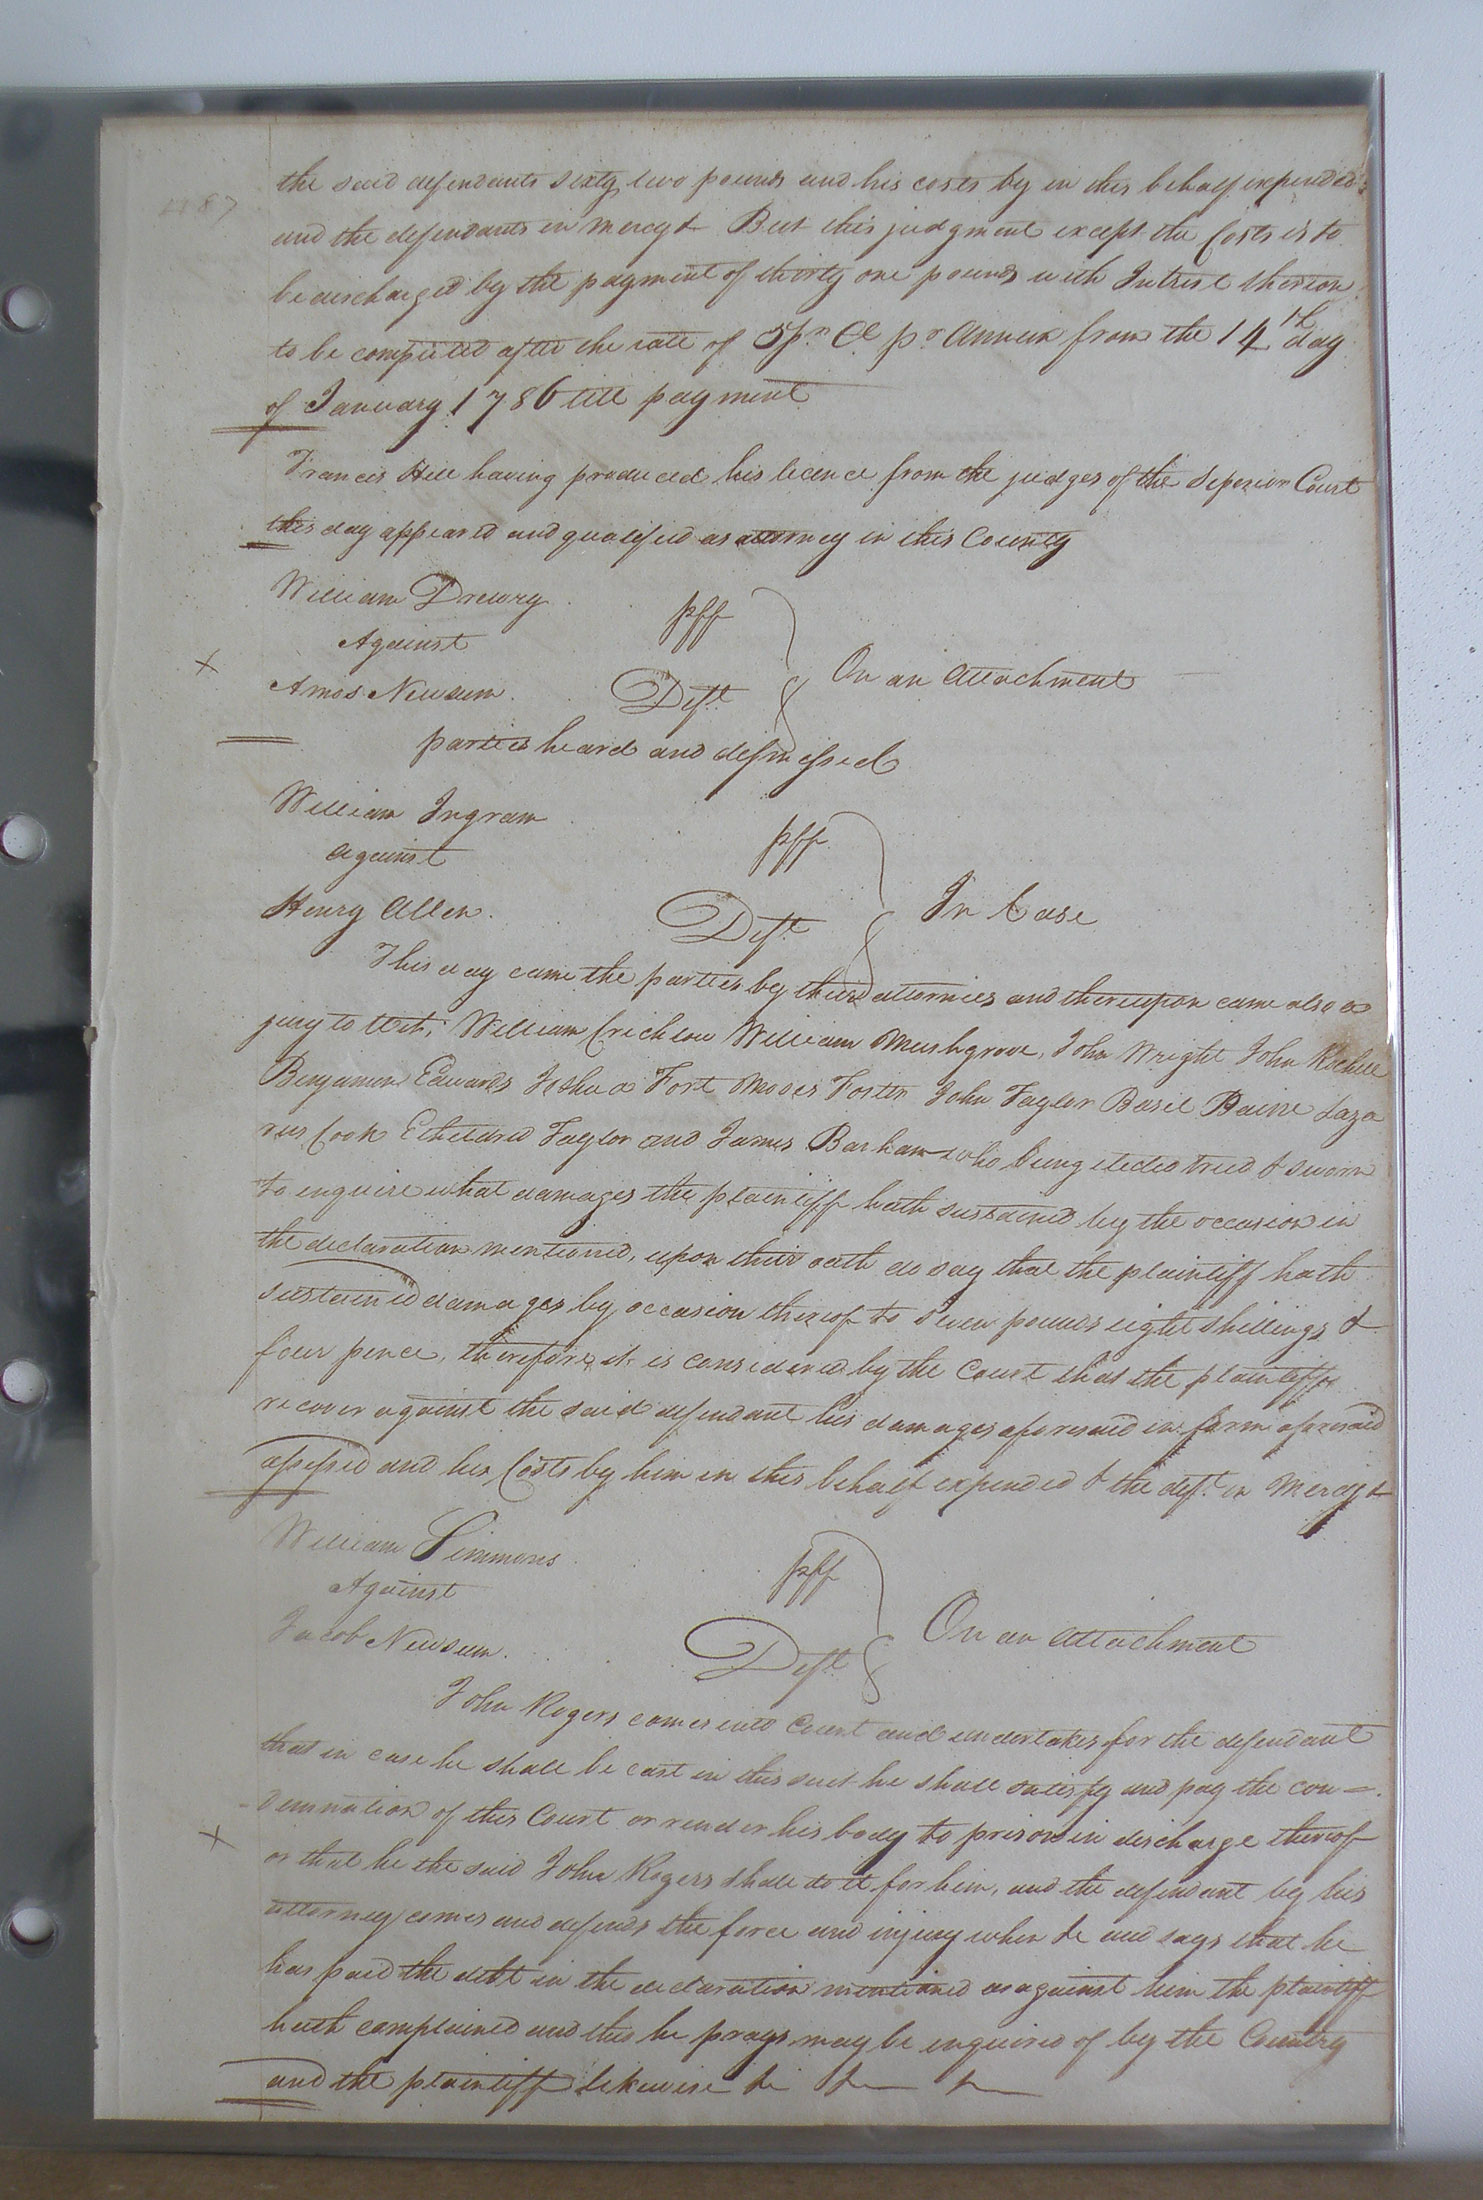 487
the said defendants sixty two pounds and his costs by in this behalf expended
and the defendants in mercy & But this judgment except the Costs is to
be discharged by the payment of thirty one pounds with Intrest thereon
to be computed after the rate of 5 pr Ct pr Annum from the 14th day
of January 1786 till payment
Francis Hill having produced his licence from the judges of the Superior Court
this day appeared and qualified as attorney in this County
William Drewry pff
Against
On an attachment
Amos Newsum. Deft
parties heard and dismissed
William Ingram pff
against
In Case
Henry Allen. Deft
This day came the parties by their attornies and thereupon came also a
jury to Wit, William Crichlow William Mushgrove, John Wright John Rochell
Benjamin Edwards Joshua Fort Moses Foster John Taylor Basil Haine Laza
rus Cook Etheldred Taylor and James Barham who being elected tried & sworn
to enquire what damages the plaintiff hath sustained by the occasion in
the declaration mentioned, upon their oath do say that the plaintiff hath
sustained damages by occasion thereof to seven pounds eight shillings &
four pence, therefore it is considered by the Court that the plaintiff
recover against the said defendant his damages aforesaid in form aforesaid
assessed and his Costs by him in this behalf expended & the deft. in Mercy &
William Simmons pff
Against
On an attachment
Jacob Newsum. Deft
John Rogers comes into Court and undertakes for the defendant
that in case he shall be cast in this suit he shall satisfy and pay the con=
-demnation of this Court or render his body to prison in discharge thereof
or that he the said John Rogers shall do it for him, and the defendant by his
attorney comes and defends the force and injury when &c and says that he
has paid the debt in the declaration mentioned as against him the plaintiff
hath complained and this he prays may be enquired of by the Country
and the plaintiff likewise &c &c &c